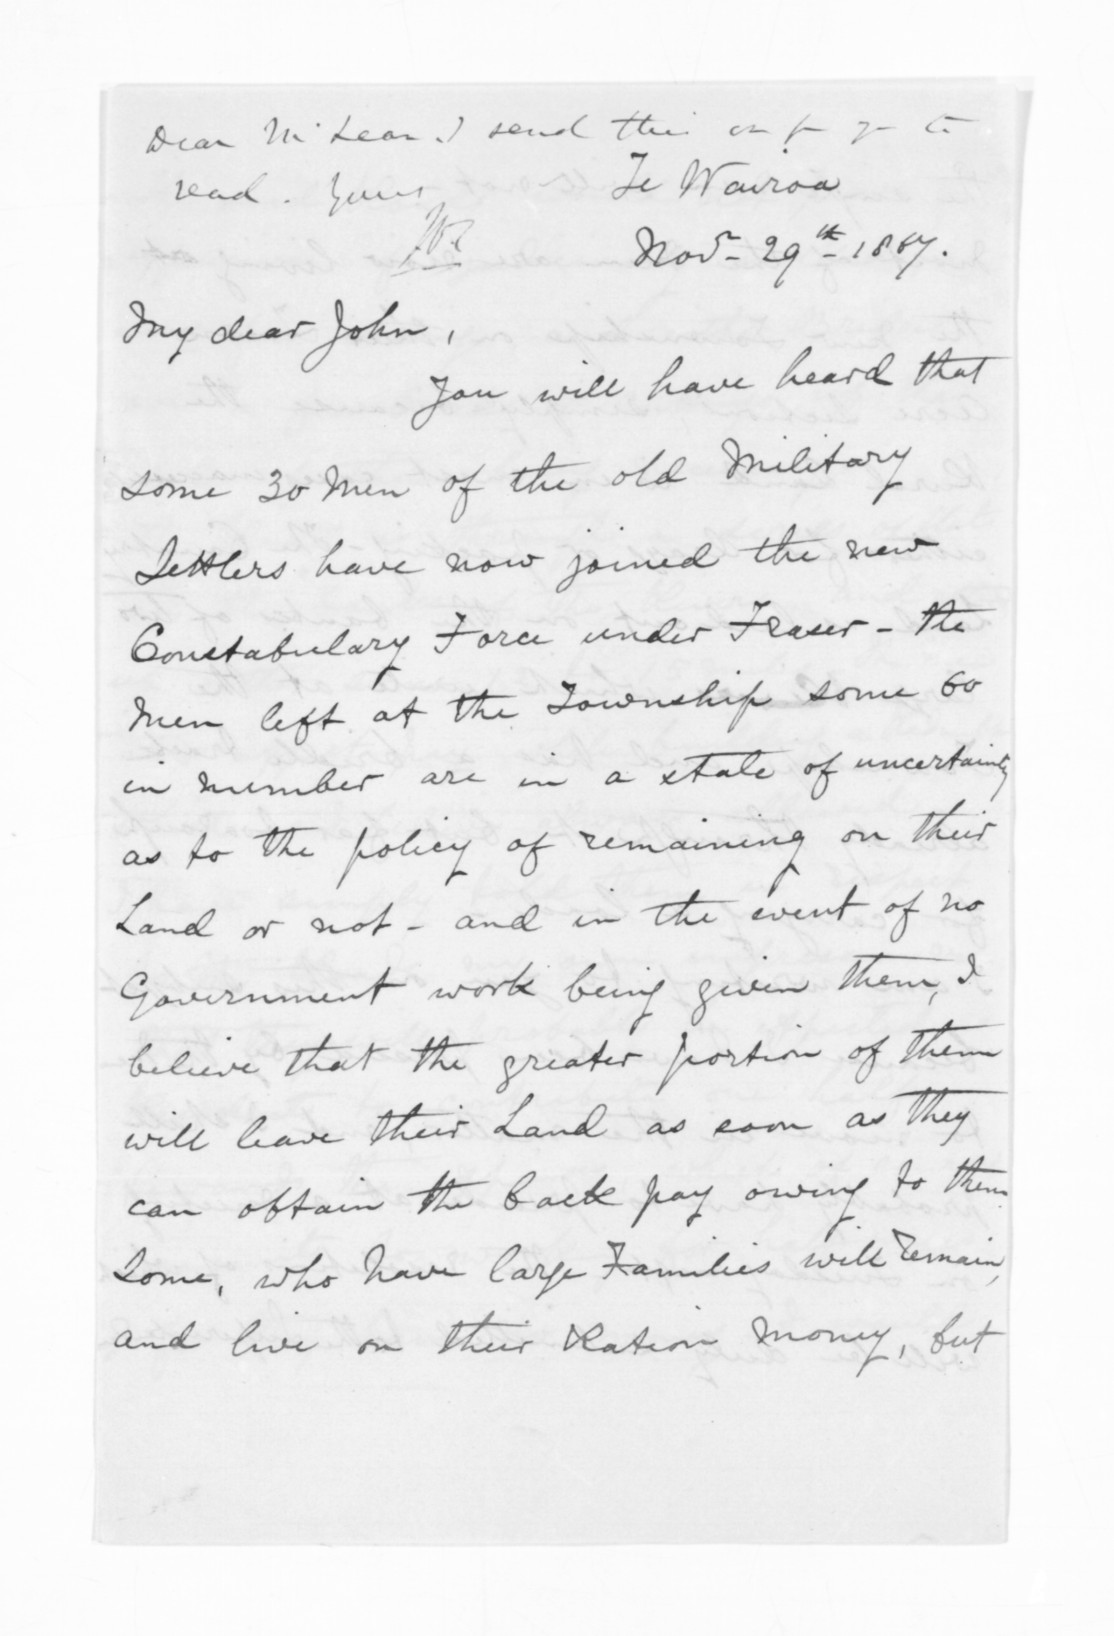 Dear McLean I send this on for you to
read. Yours
Te Wairoa
Novr. 29th. 1867.
My dear John,
You will have heard that
some 30 Men of the old Military
Settlers have now joined the new
Constabulary Force under Fraser - the
Men left at the Township some 60
in number are in a state of uncertainty
as to the policy of remaining on their
Land or not - and in the event of no
Government work being given them, I
believe that the greater portion of them
will leave their Land as soon as they
can obtain the back pay owing to them
Some, who have large Families will remain,
and live on their Ration Money, but